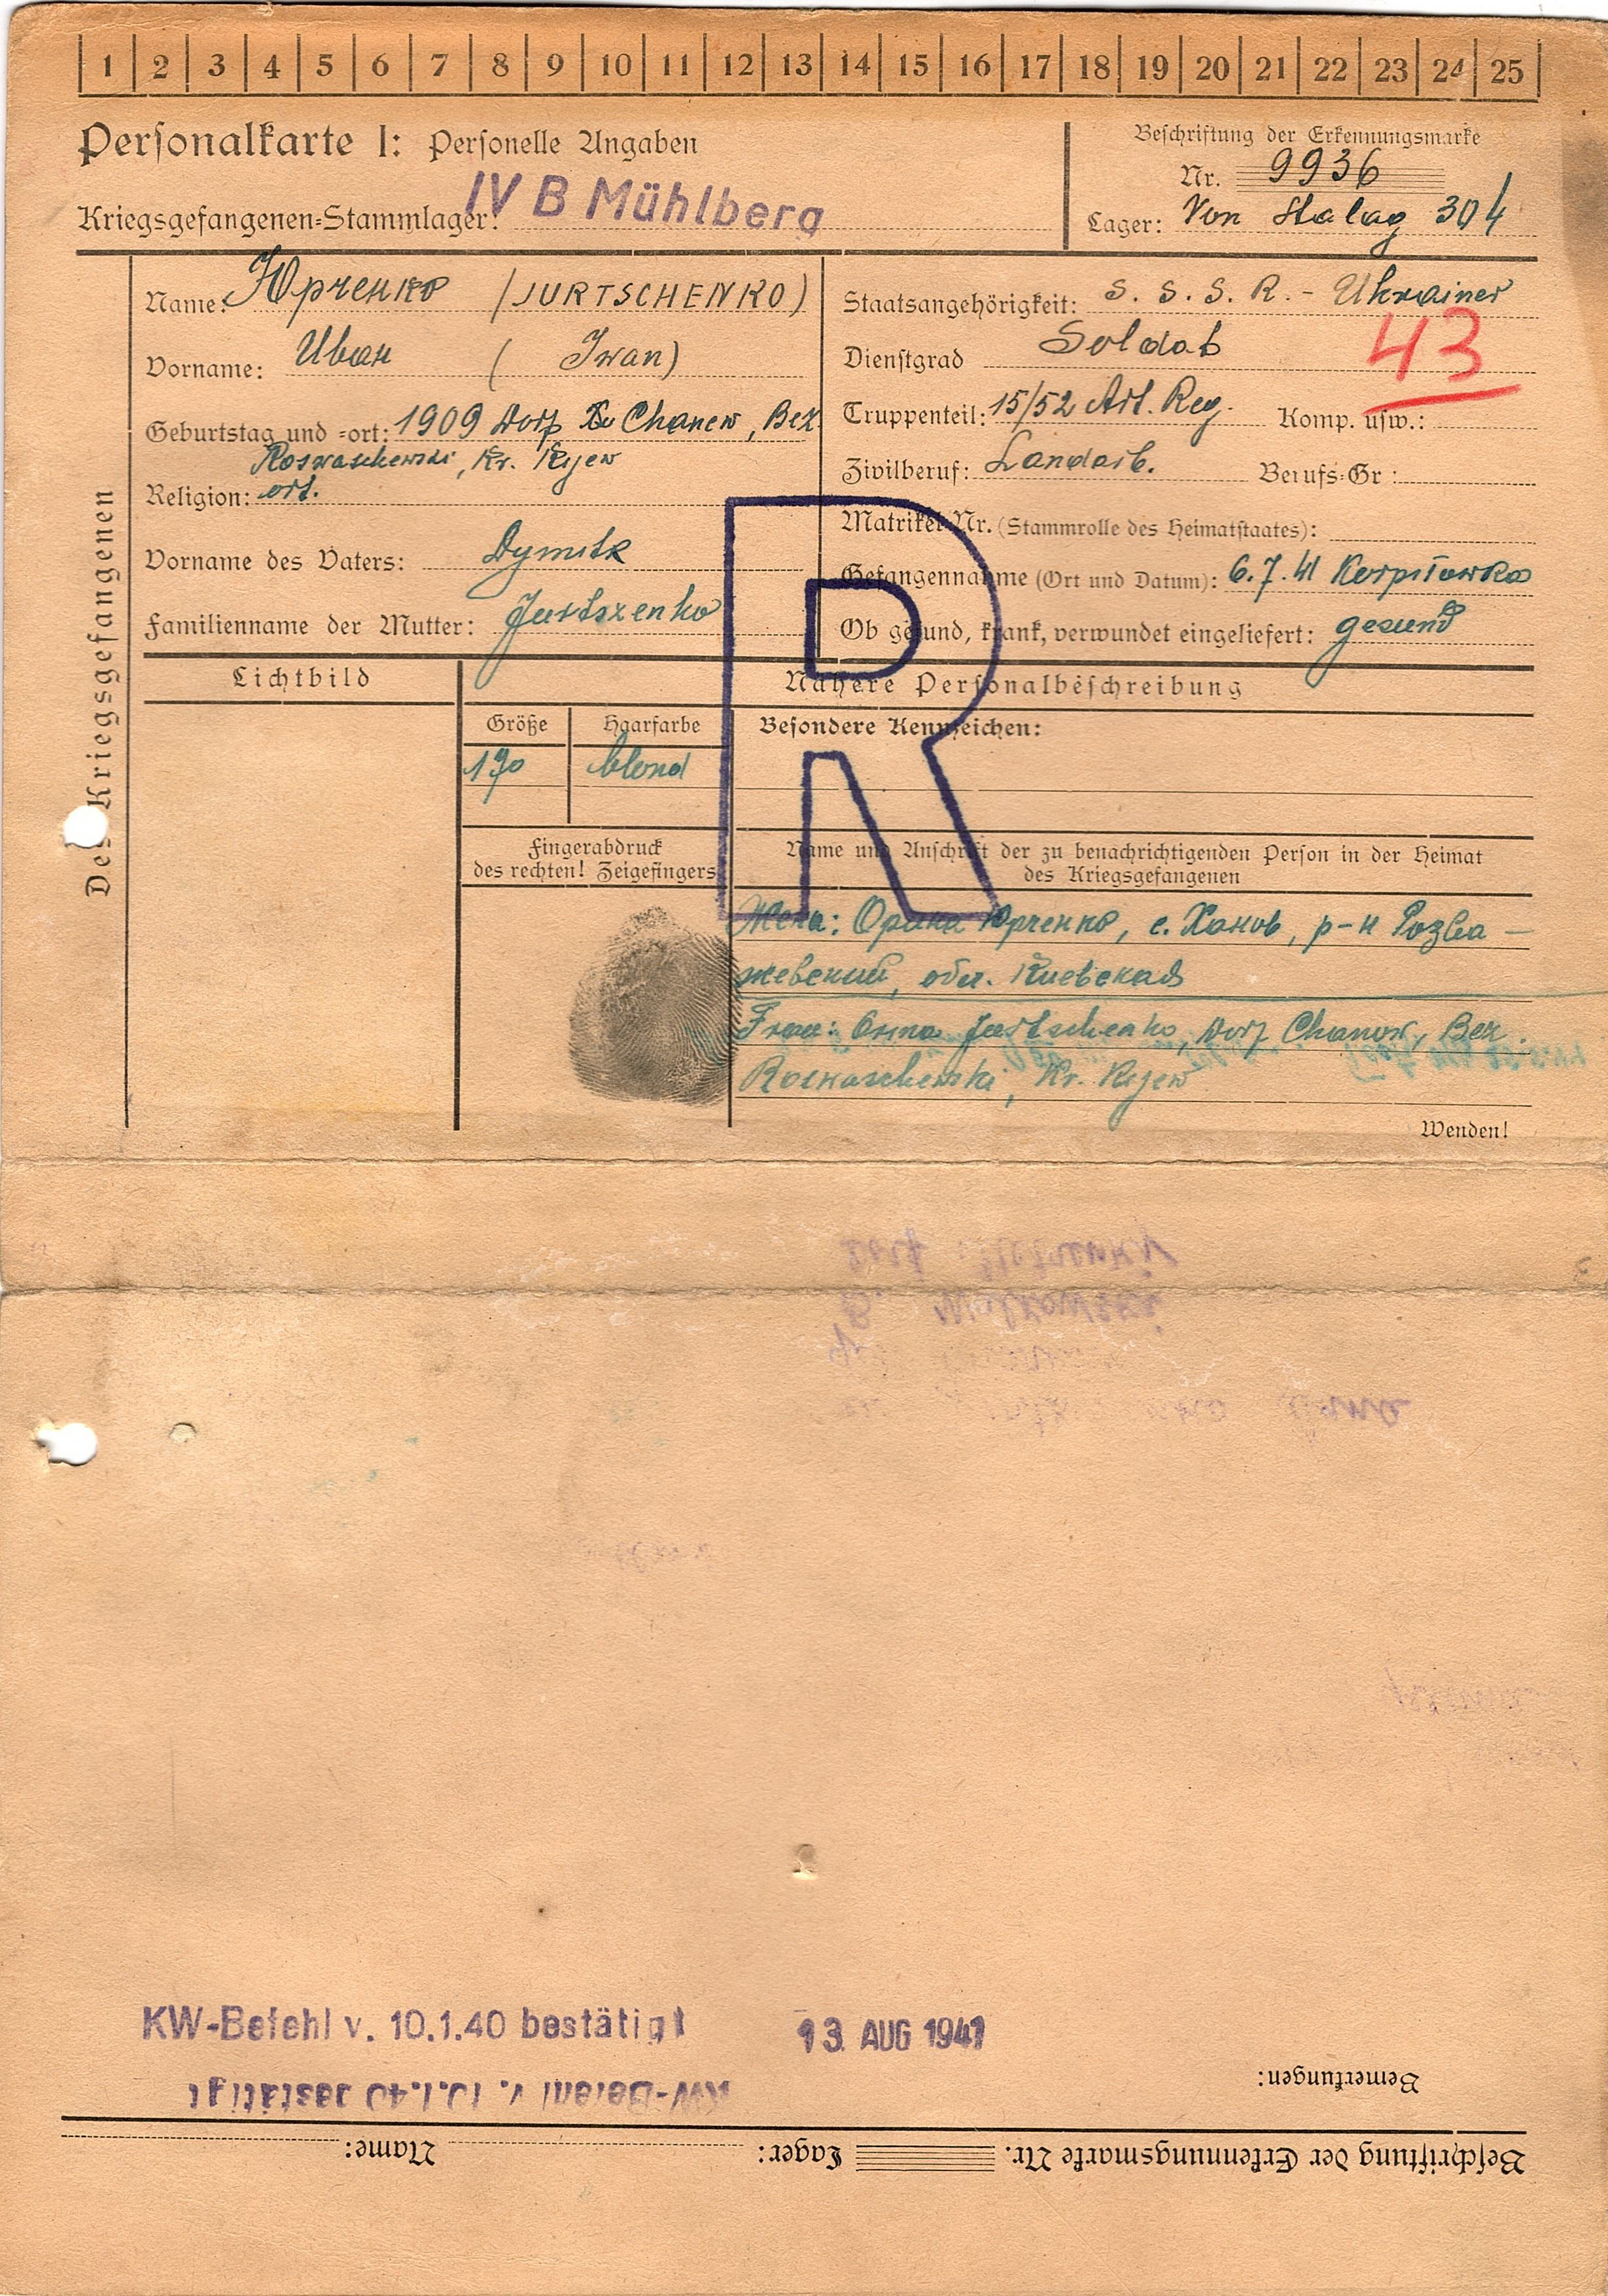 1 2 3 4 5 6 7 8 9 10 11 12 13 14 15 16 17 18 19 20 21 22 23 24 25
Personalkarte I: Personelle Angaben
Beschriftung der Erkennungsmarke
Nr. 9936
Kriegsgefangenen-Stammlager: IV B Mühlberg
Lager: Von Stalag 304
Des Kriegsgefangenen
Name: Юрченко (JURTSCHENKO)
Vorname: Иван (Iwan)
Geburtstag und -ort: 1909 Dorf Chanew, Bez.
Roswaschewski, Kr. Kijew
Religion: ort.
Vorname des Vaters: Dymitr
Familienname der Mutter: Jurtszenko
Staatsangehörigkeit: S. S. S. R. - Ukrainer
43
Dienstgrad Soldat
Truppenteil: 15/52 Art. Reg. Komp. usw.:
Zivilberuf: Landarb. Berufs-Gr:
Matrikel Nr. (Stammrolle des Heimatstaates):
Gefangennahme (Ort und Datum): 6.7.41
Ob gesund, krank, verwundet eingeliefert: gesund
R
Lichtbild
Nähere Personalbeschreibung
Größe Haarfarbe Besondere Kennzeichen:
170 blond
Fingerabdruck
des rechten! Zeigefingers
Name und Anschrift der zu benachrichtigenden Person in der Heimat
des Kriegsgefangenen
Жена: Юрченко, с. Ханов, р-н Розва-
жевский, обл. Киевская
Frau: Jurtschenko, Dorf Chanow, Bez.
Roswaschewski, Kr. Kijew
Wenden!
KW-Befehl v. 10.1.40 bestätigt 13. AUG 1941
KW-Befehl v. 10.1.40 bestätigt
Bemerkungen:
Beschriftung der Erkennungsmarke Nr. Lager: Name: